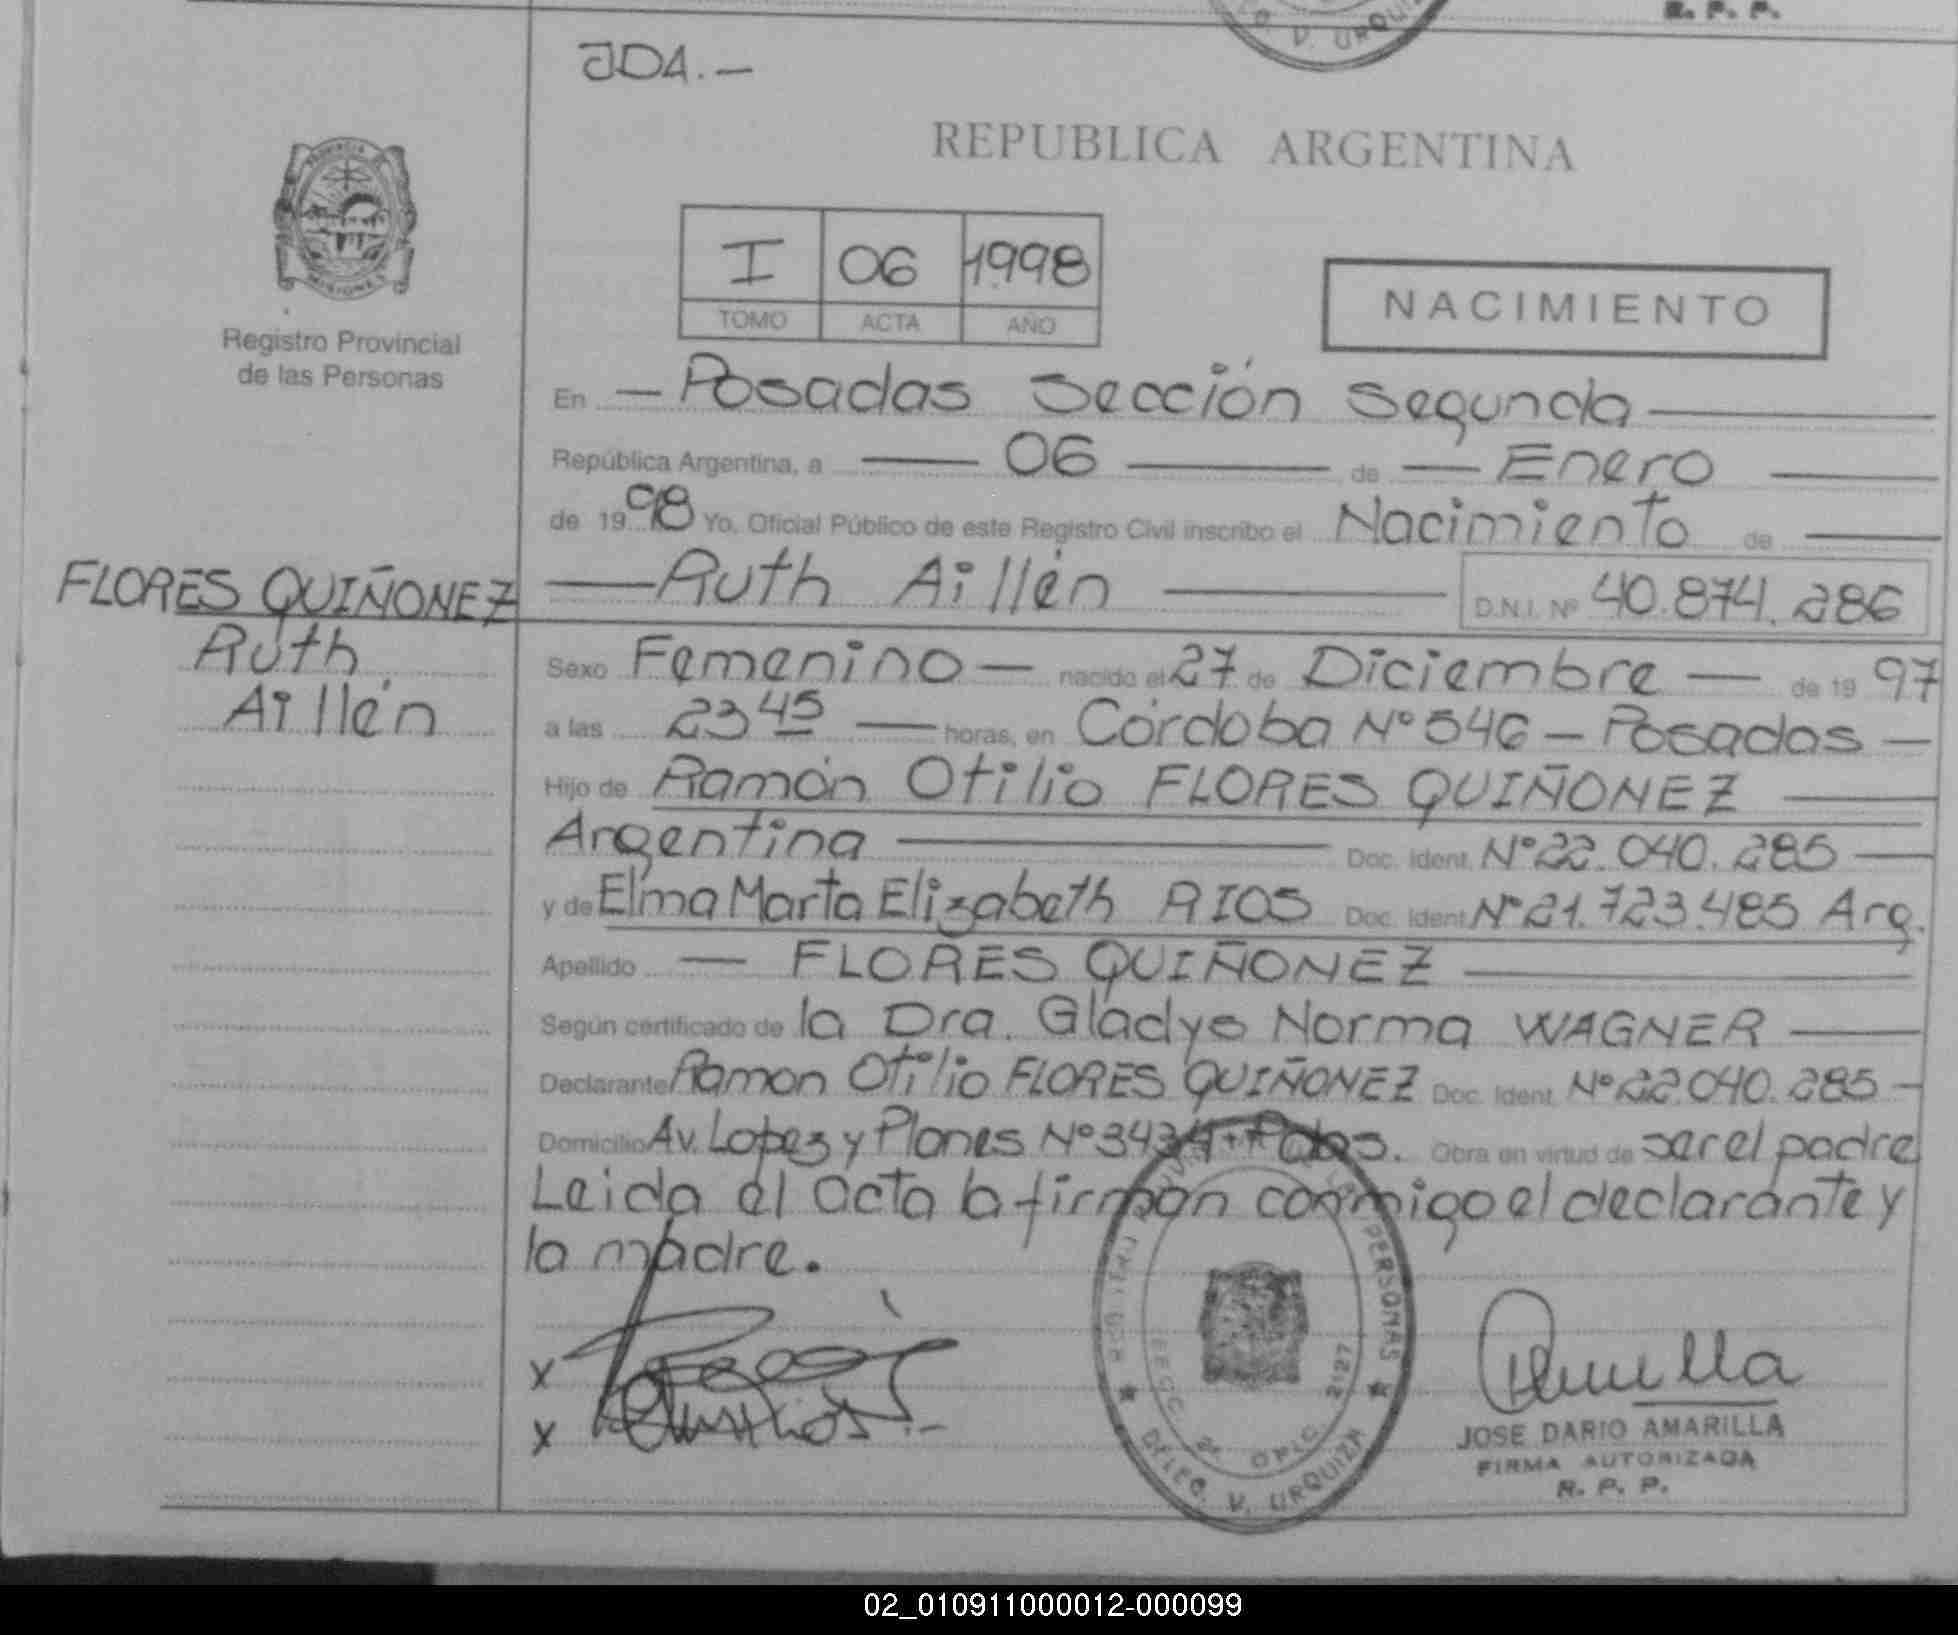 R. P. P.
V. URQUIZA
JDA.-
PROVINCIA DE
MISIONES
Registro Provincial
de las Personas
REPUBLICA ARGENTINA
I 06 1998
TOMO ACTA AÑO
NACIMIENTO
En - Posadas Sección Segunda
República Argentina, a 06 de Enero
de 1998 Yo, Oficial Público de este Registro Civil inscribo el Nacimiento de
Ruth Aillén D.N.I. Nº 40.874.286
FLORES QUIÑONEZ
Ruth
Aillén
Sexo Femenino - nacido el 27 de Diciembre - de 1997
a las 23 45 horas, en Córdoba Nº 546 - Posadas -
Hijo de Ramón Otilio FLORES QUIÑONEZ
Argentina Doc. Ident. Nº 22.040.285
y de Elma Marta Elizabeth RIOS Doc. Ident. Nº 21.723.485 Arg.
Apellido - FLORES QUIÑONEZ
Según certificado de la Dra. Gladys Norma WAGNER
Declarante Ramon Otilio FLORES QUIÑONEZ Doc. Ident. Nº 22.040.285 -
Domicilio Av. Lopez y Planes Nº 3434 - Pdas. Obra en virtud de ser el padre
Leida el acta la firman conmigo el declarante y
la madre.
x
x
PERSONAS
2127
DELEG. V. URQUIZA
JOSE DARIO AMARILLA
FIRMA AUTORIZADA
R. P. P.
02_010911000012-000099